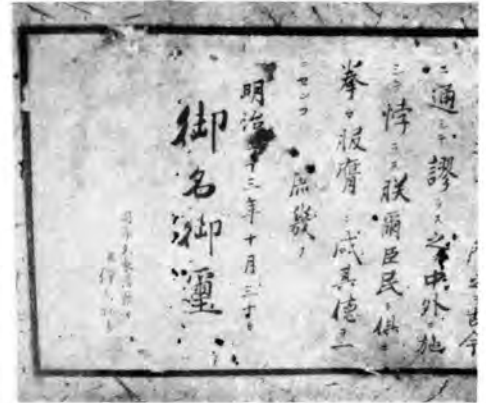 之ヲ古今
ニ通シテ謬ラス之ヲ中外ニ施
シテ悖ラス朕爾臣民ト倶ニ
拳々服膺シ咸其徳ヲ一
ニセンコ 庶幾フ
明治 十三年十月三十日
御名御璽